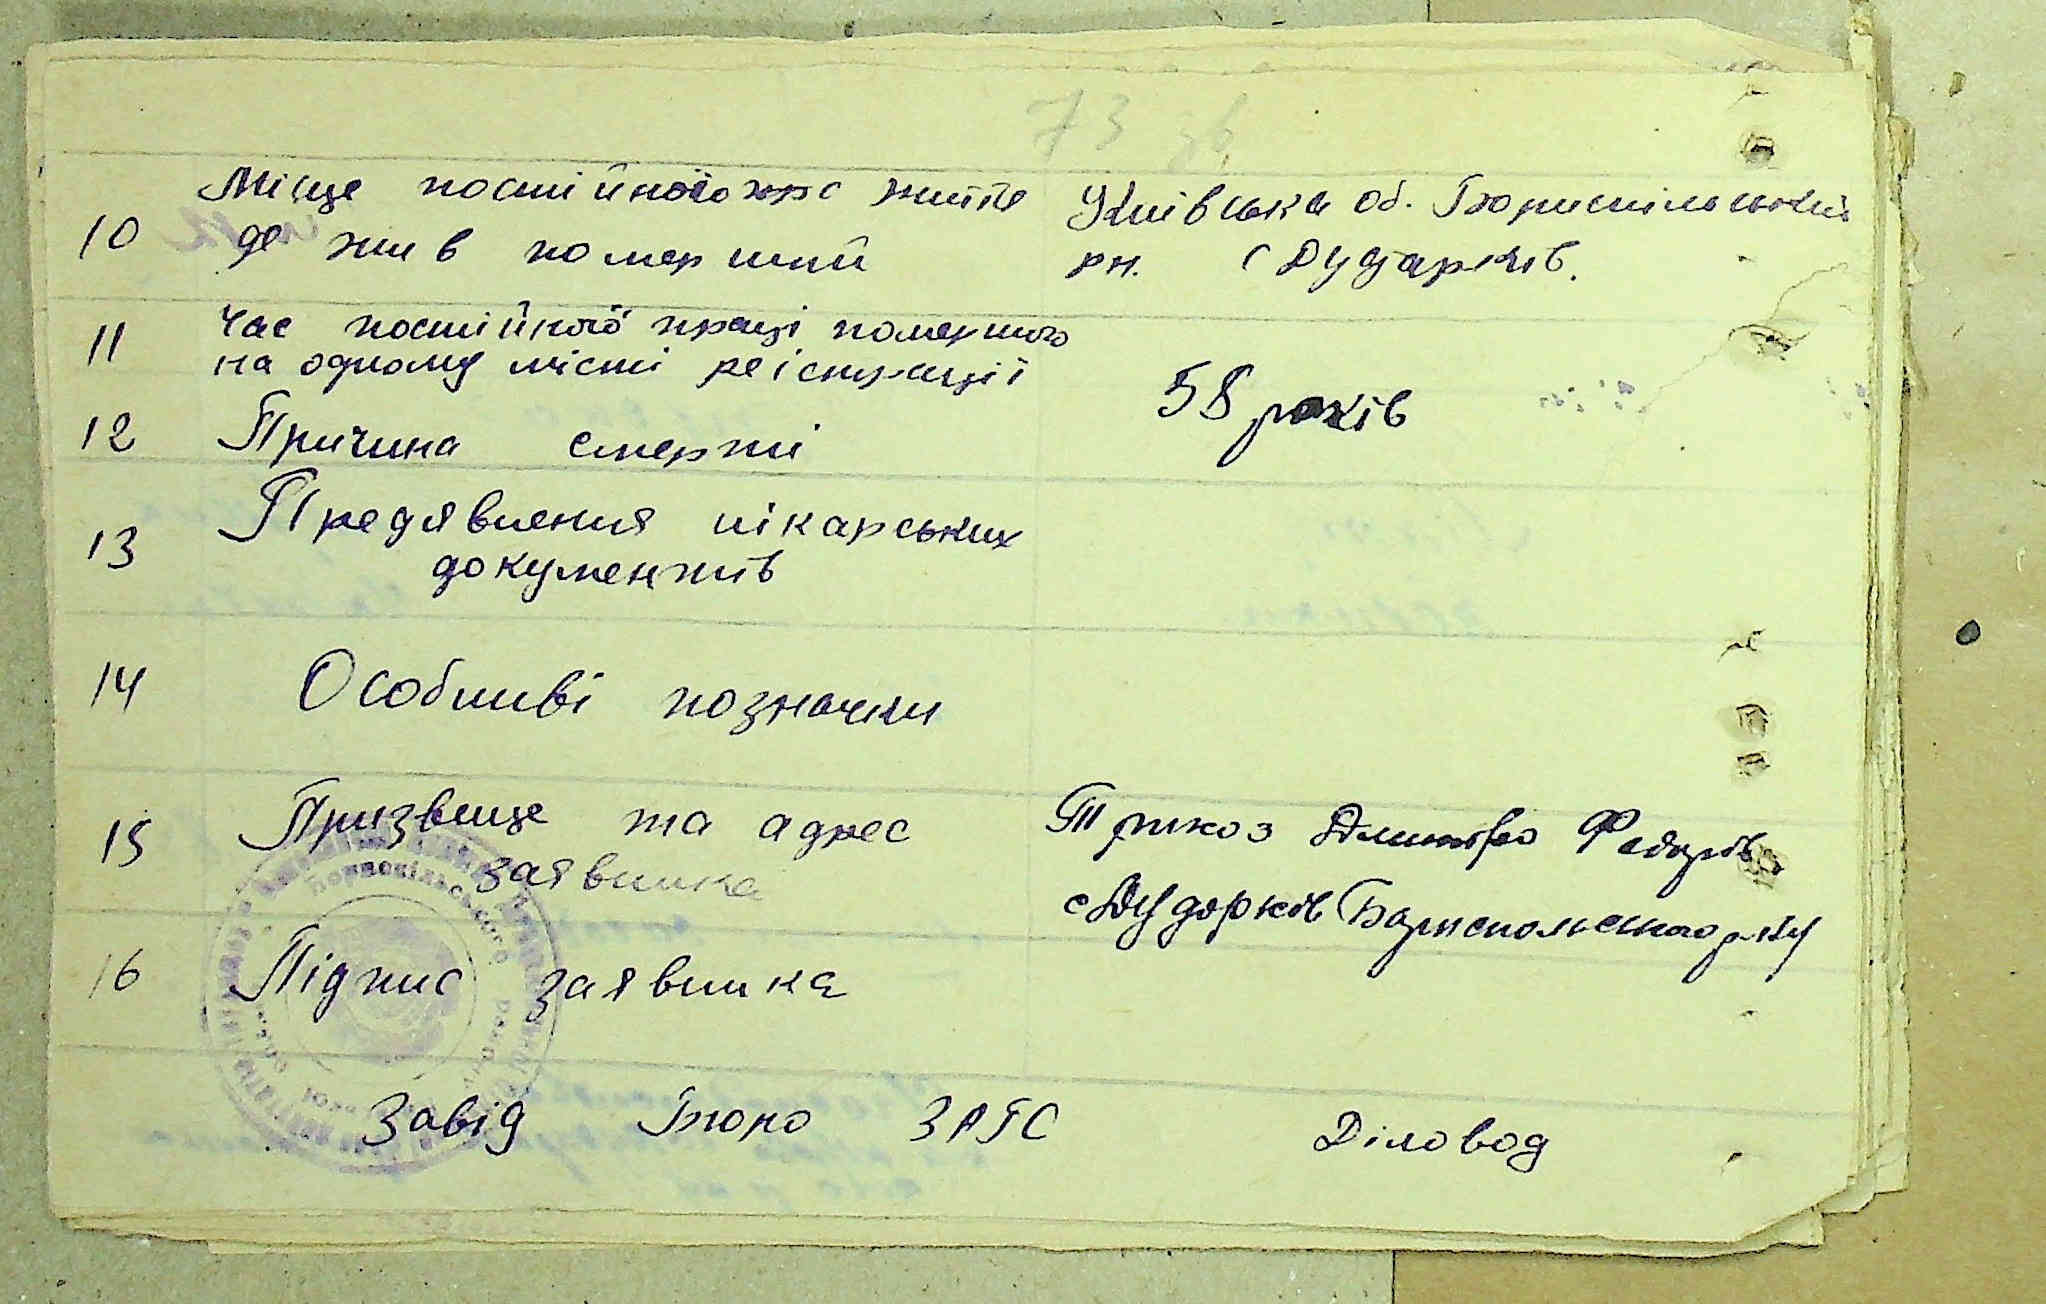 73 зв
10 Місце постійного життя Київська об. Бориспільський
де жив померший рн. с Дударків.
11 Час постійної праці помершого
на одному місті реістрації 58 років
12 Причина смерти
13 Предявлення лікарських
документів
14 Особливі позначки
15 Призвище та адрес Трикоз Дмитро Федорів
заявника с Дударків Бориспольського р-ну
16 Підпис заявника
Завід Бюро ЗАГС Діловод